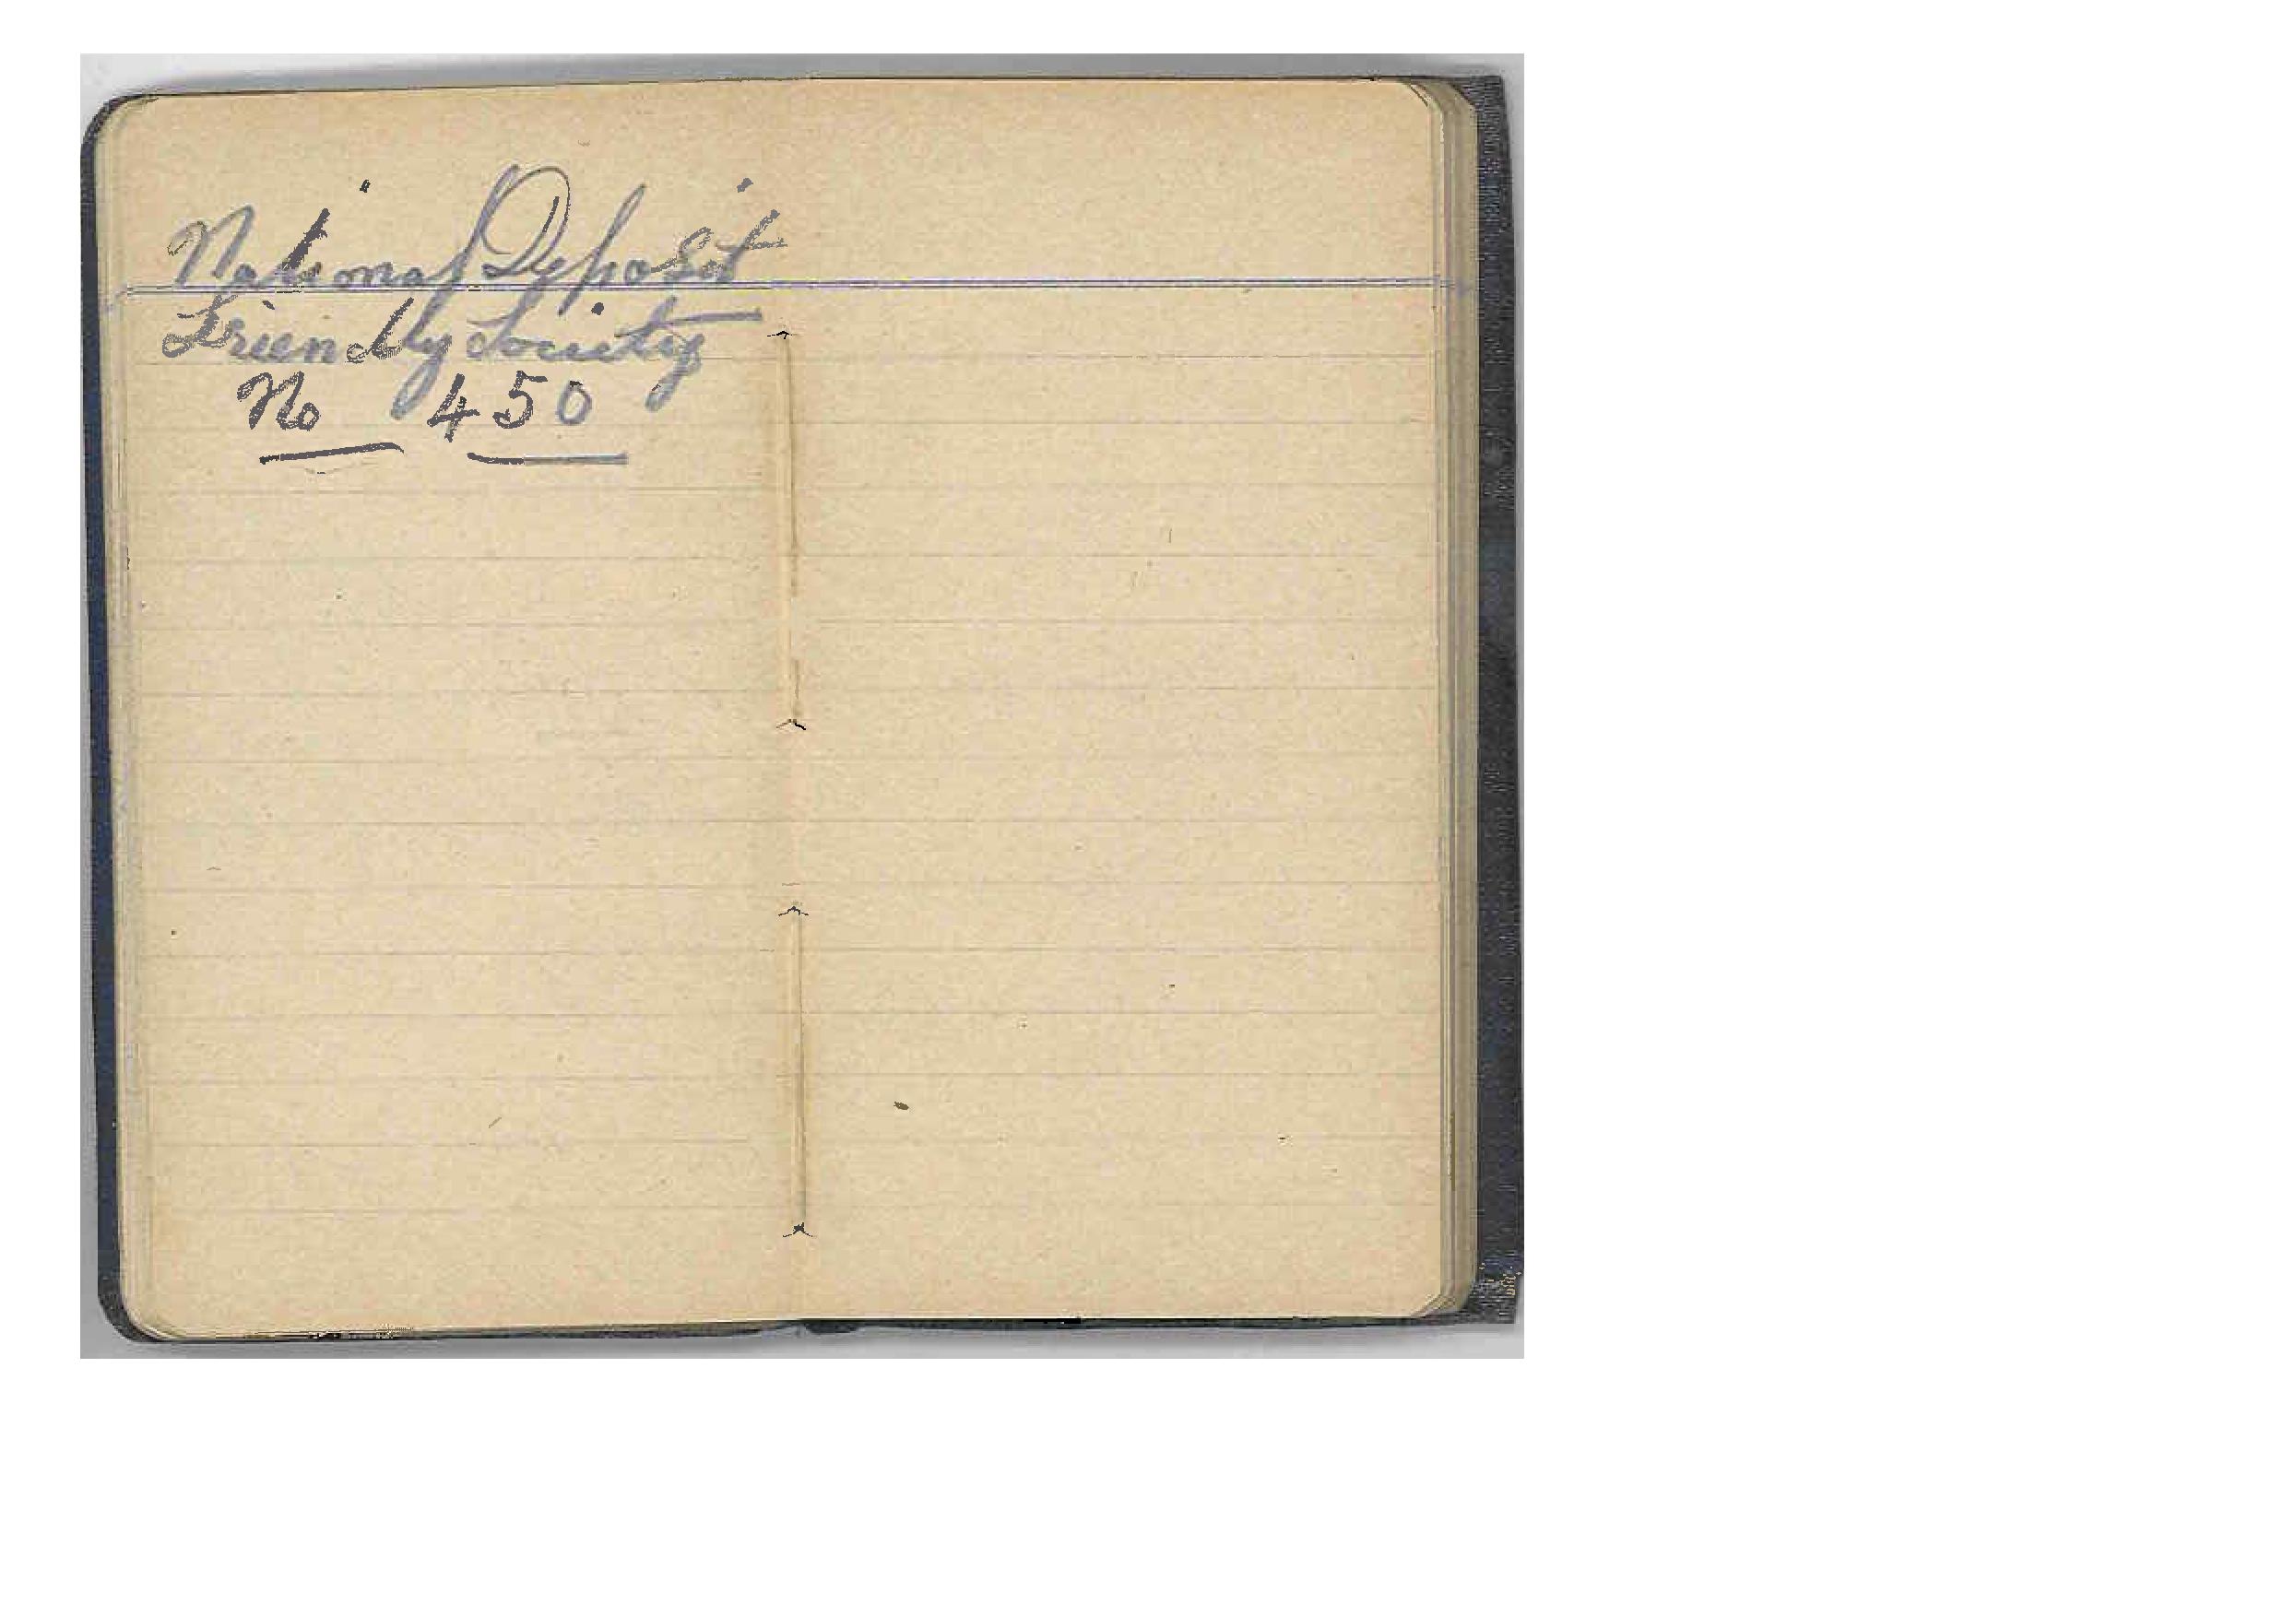 National Deposit
Friendly Society
No 450